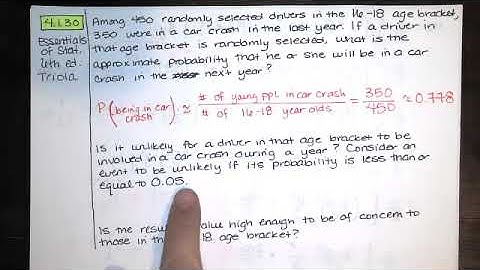 4.1.30
Essentials
of Stat.
4th ed.
Triola.
Among 450 randomly selected drivers in the 16-18 age bracket,
350 were in a car crash in the last year. If a driver in
that age bracket is randomly selected, what is the
approximate probability that he or she will be in a car
crash in the next year?
P(being in car crash) ≈ # of young ppl in car crash / # of 16-18 year olds = 350/450 ≈ 0.778
Is it unlikely for a driver in that age bracket to be
involved in a car crash during a year? Consider an
event to be unlikely if its probability is less than or
equal to 0.05.
Is the resu value high enough to be of concern to
those in th 18 age bracket?